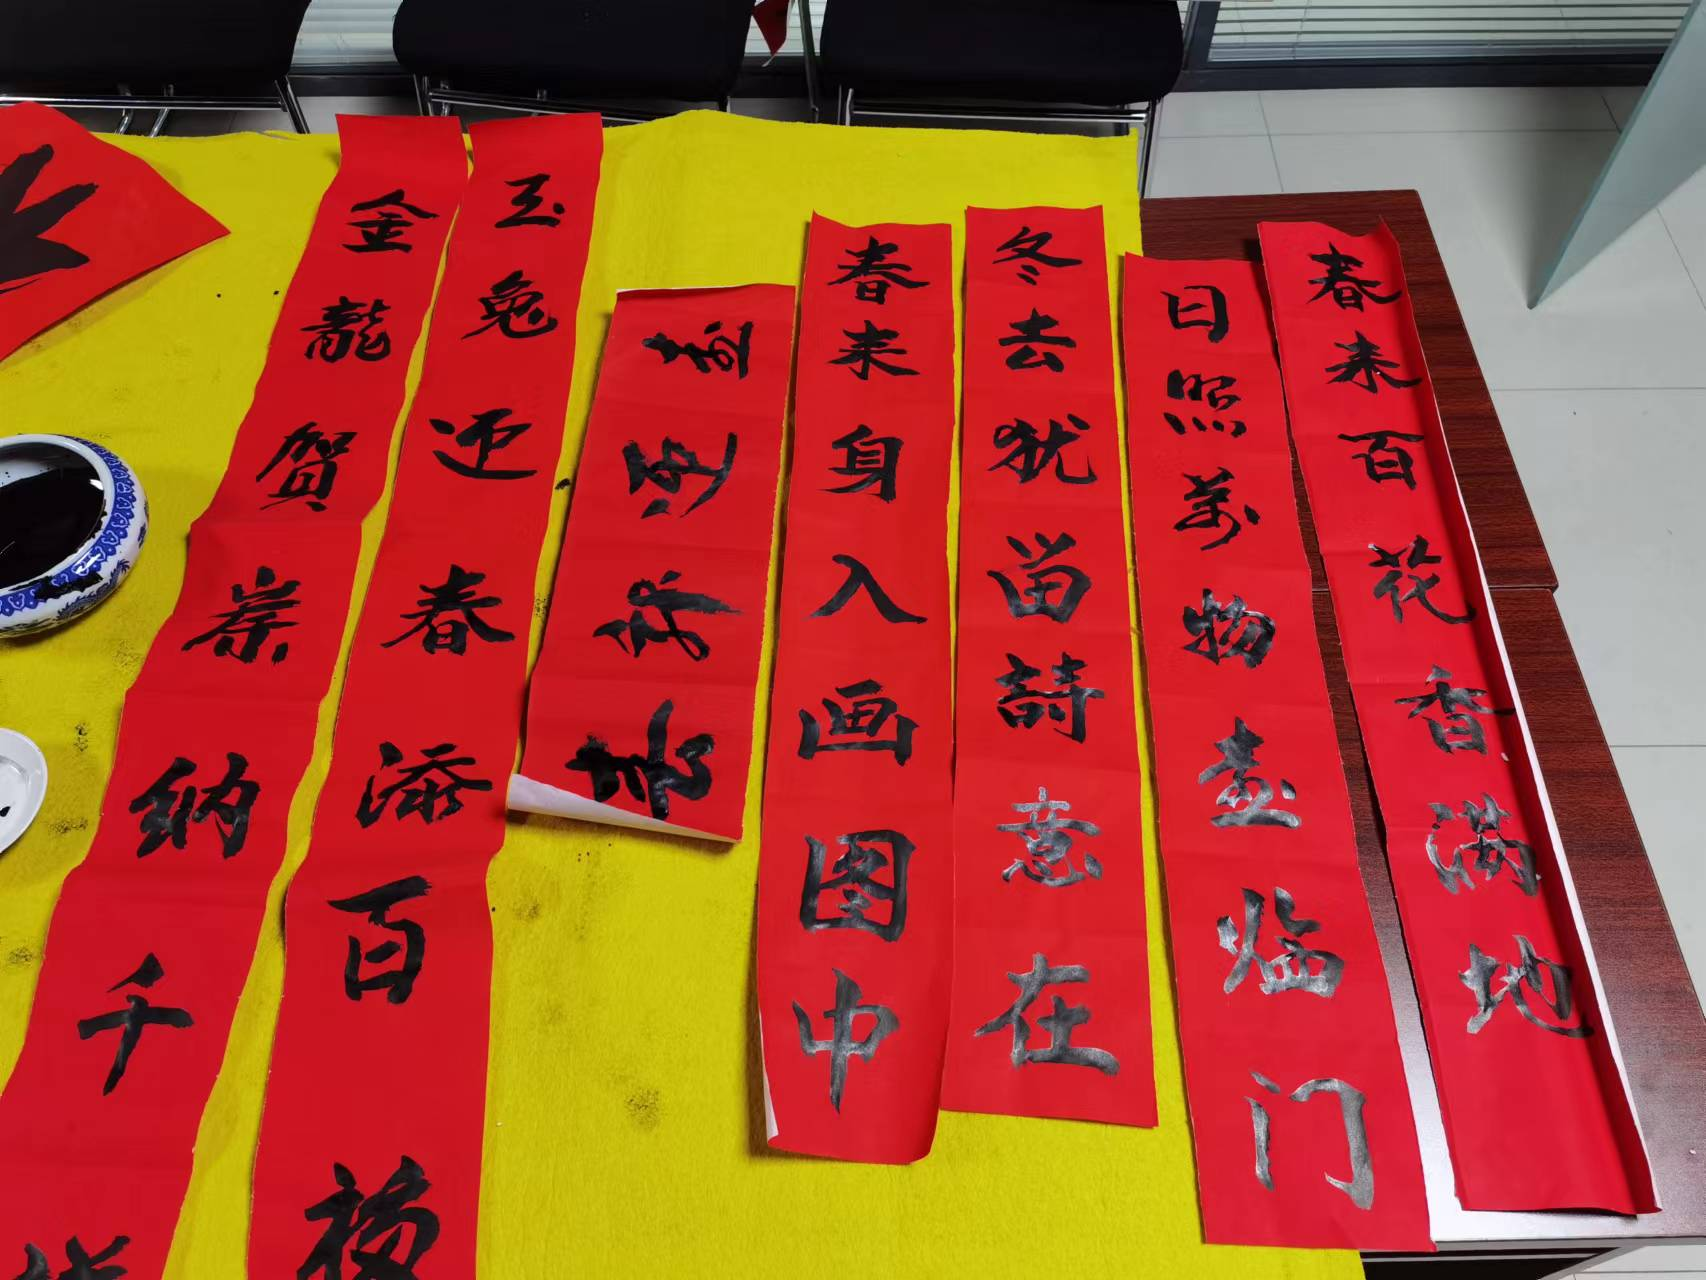 春来百花香满地
日照萬物喜临门
冬去犹留詩意在
春来身入画图中
玉兔迎春添百福
金龍賀嵗纳千祥